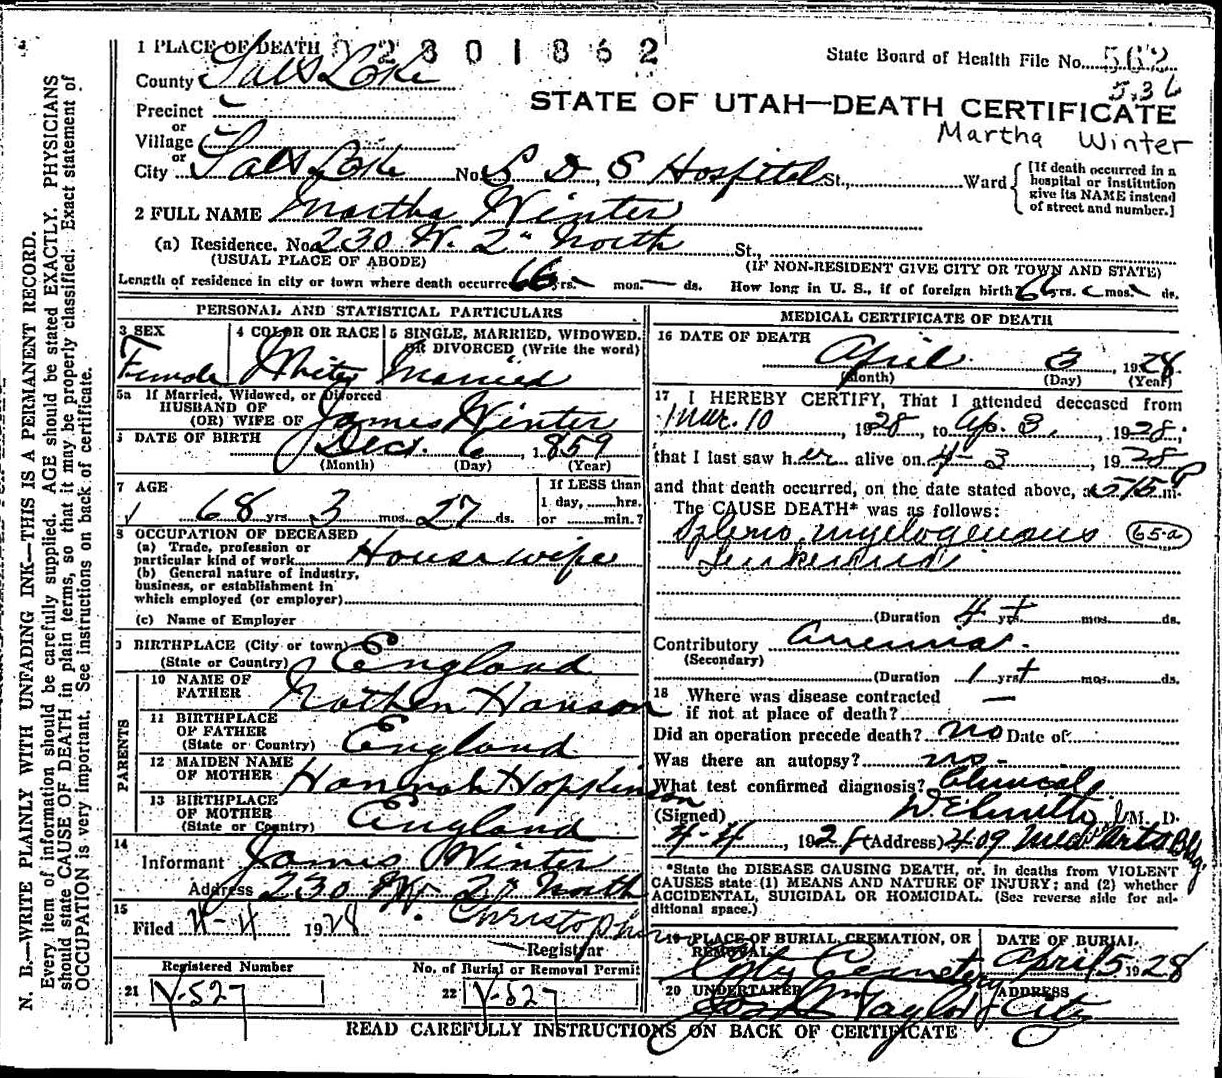 1 PLACE OF DEATH 02301862
State Board of Health File No. 562
536
County Salt Lake
STATE OF UTAH—DEATH CERTIFICATE
Martha Winter
Precinct
or
Village
or
City Salt Lake No. L D S Hospital St., Ward
[If death occurred in a hospital or institution give its NAME instead of street and number.]
2 FULL NAME Martha Winter
(a) Residence. No. 230 W. 2" North St.,
(USUAL PLACE OF ABODE) (IF NON-RESIDENT GIVE CITY OR TOWN AND STATE)
Length of residence in city or town where death occurred 66 yrs. — mos. — ds. How long in U. S., if of foreign birth? 66 yrs. mos. ds.
PERSONAL AND STATISTICAL PARTICULARS
3 SEX 4 COLOR OR RACE 5 SINGLE, MARRIED, WIDOWED.
OR DIVORCED (Write the word)
Female White Married
5a If Married, Widowed, or Divorced
HUSBAND OF
(OR) WIFE OF James Winter
6 DATE OF BIRTH Dec. 6, 1859
(Month) (Day) (Year)
7 AGE If LESS than
1 day, ......hrs.
68 yrs. 3 mos. 27 ds. or ......min.?
8 OCCUPATION OF DECEASED
(a) Trade, profession or
particular kind of work Housewife
(b) General nature of industry,
business, or establishment in
which employed (or employer)
(c) Name of Employer
9 BIRTHPLACE (City or town)
(State or Country) England
PARENTS
10 NAME OF
FATHER Nathen Hanson
11 BIRTHPLACE
OF FATHER
(State or Country) England
12 MAIDEN NAME
OF MOTHER Hannah Hopkinson
13 BIRTHPLACE
OF MOTHER
(State or Country) England
14
Informant James Winter
Address 230 W. 2" North
15
Filed 4-4 1928 W. Christopher
Registrar
Registered Number No. of Burial or Removal Permit
21 V-527 22 V-527
MEDICAL CERTIFICATE OF DEATH
16 DATE OF DEATH
April 3, 1928
(Month) (Day) (Year)
17 I HEREBY CERTIFY, That I attended deceased from
Mar. 10, 1928, to Ap. 3, 1928;
that I last saw her alive on 4-3, 1928
and that death occurred, on the date stated above, at 515 P m.
The CAUSE DEATH* was as follows:
Spleno myelogenous 65-a
Leukemia
(Duration 4 + yrs. mos. ds.
Contributory Anemia.
(Secondary)
(Duration 1 yrs + mos. ds.
18 Where was disease contracted
if not at place of death? —
Did an operation precede death? no Date of
Was there an autopsy? no -
What test confirmed diagnosis? Clinical
(Signed) M. D.
4-4, 1928 (Address) 409 Med Arts Bldg
*State the DISEASE CAUSING DEATH, or, in deaths from VIOLENT
CAUSES state (1) MEANS AND NATURE OF INJURY; and (2) whether
ACCIDENTAL, SUICIDAL OR HOMICIDAL. (See reverse side for ad-
ditional space.)
19 PLACE OF BURIAL, CREMATION, OR
REMOVAL DATE OF BURIAL
City Cemetery April 5 1928
20 UNDERTAKER ADDRESS
Taylor City
READ CAREFULLY INSTRUCTIONS ON BACK OF CERTIFICATE
N. B.—WRITE PLAINLY WITH UNFADING INK—THIS IS A PERMANENT RECORD.
Every item of information should be carefully supplied. AGE should be stated EXACTLY. PHYSICIANS
should state CAUSE OF DEATH in plain terms, so that it may be properly classified. Exact statement of
OCCUPATION is very important. See instructions on back of certificate.